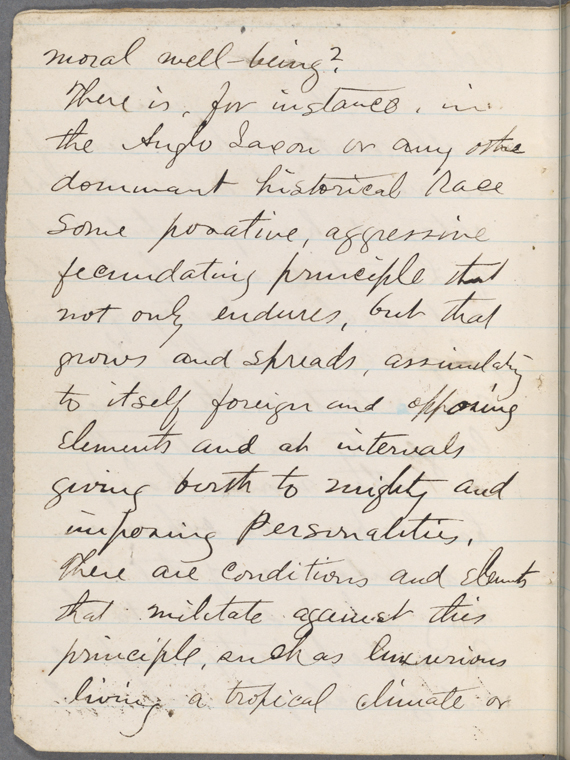 moral well-being?
There is, for instance, in
the Anglo Saxon or any other
dominant historical Race
some positive, aggressive
fecundating principle that
not only endures, but that
grows and spreads, assimilating
to itself foreign and opposing
elements and at intervals
giving birth to mighty and
imposing Personalities.
There are conditions and elements
that militate against this
principle, such as luxurious
living, a tropical climate or